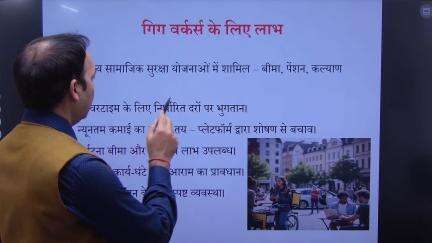 गिग वर्कर्स के लिए लाभ
सामाजिक सुरक्षा योजनाओं में शामिल – बीमा, पेंशन, कल्याण
के लिए निर्धारित दरों पर भुगतान।
न्यूनतम कमाई का तय – प्लेटफॉर्म द्वारा शोषण से बचाव।
बीमा और लाभ उपलब्ध।
कार्य-घंटे आराम का प्रावधान।
स्पष्ट व्यवस्था।